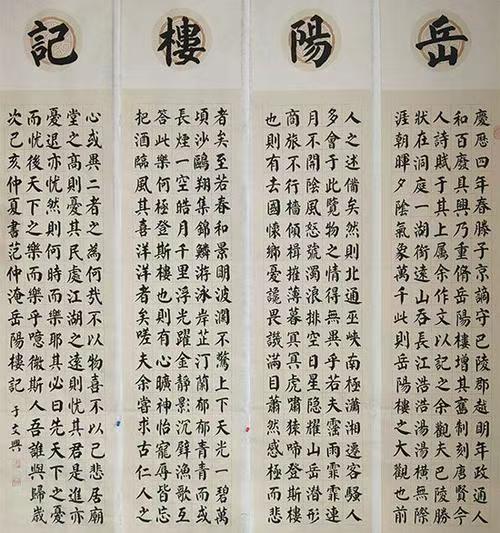 岳陽樓記
慶歷四年春滕子京謫守巴陵郡越明年政通人
和百廢具興乃重脩岳陽樓增其舊制刻唐賢今
人詩賦于其上属余作文以記之余觀夫巴陵勝
狀在洞庭一湖銜遠山吞長江浩浩湯湯橫無際
涯朝暉夕陰氣象萬千此則岳陽樓之大觀也前
人之述備矣然則北通巫峽南極瀟湘遷客騷人
多會于此覽物之情得無異乎若夫霪雨霏霏連
月不開陰風怒號濁浪排空日星隱耀山岳潛形
商旅不行檣傾楫摧薄暮冥冥虎嘯猿啼登斯樓
也則有去國懷鄉憂讒畏譏滿目蕭然感極而悲
者矣至若春和景明波瀾不驚上下天光一碧萬
頃沙鷗翔集錦鱗游泳岸芷汀蘭郁郁青青而或
長煙一空皓月千里浮光躍金靜影沉璧漁歌互
答此樂何極登斯樓也則有心曠神怡寵辱皆忘
把酒臨風其喜洋洋者矣嗟夫余嘗求古仁人之
心或異二者之為何哉不以物喜不以己悲居廟
堂之高則憂其民處江湖之遠則憂其君是進亦
憂退亦憂然則何時而樂耶其必曰先天下之憂
而憂後天下之樂而樂乎噫微斯人吾誰與歸歲
次己亥仲夏書范仲淹岳陽樓記 于文興